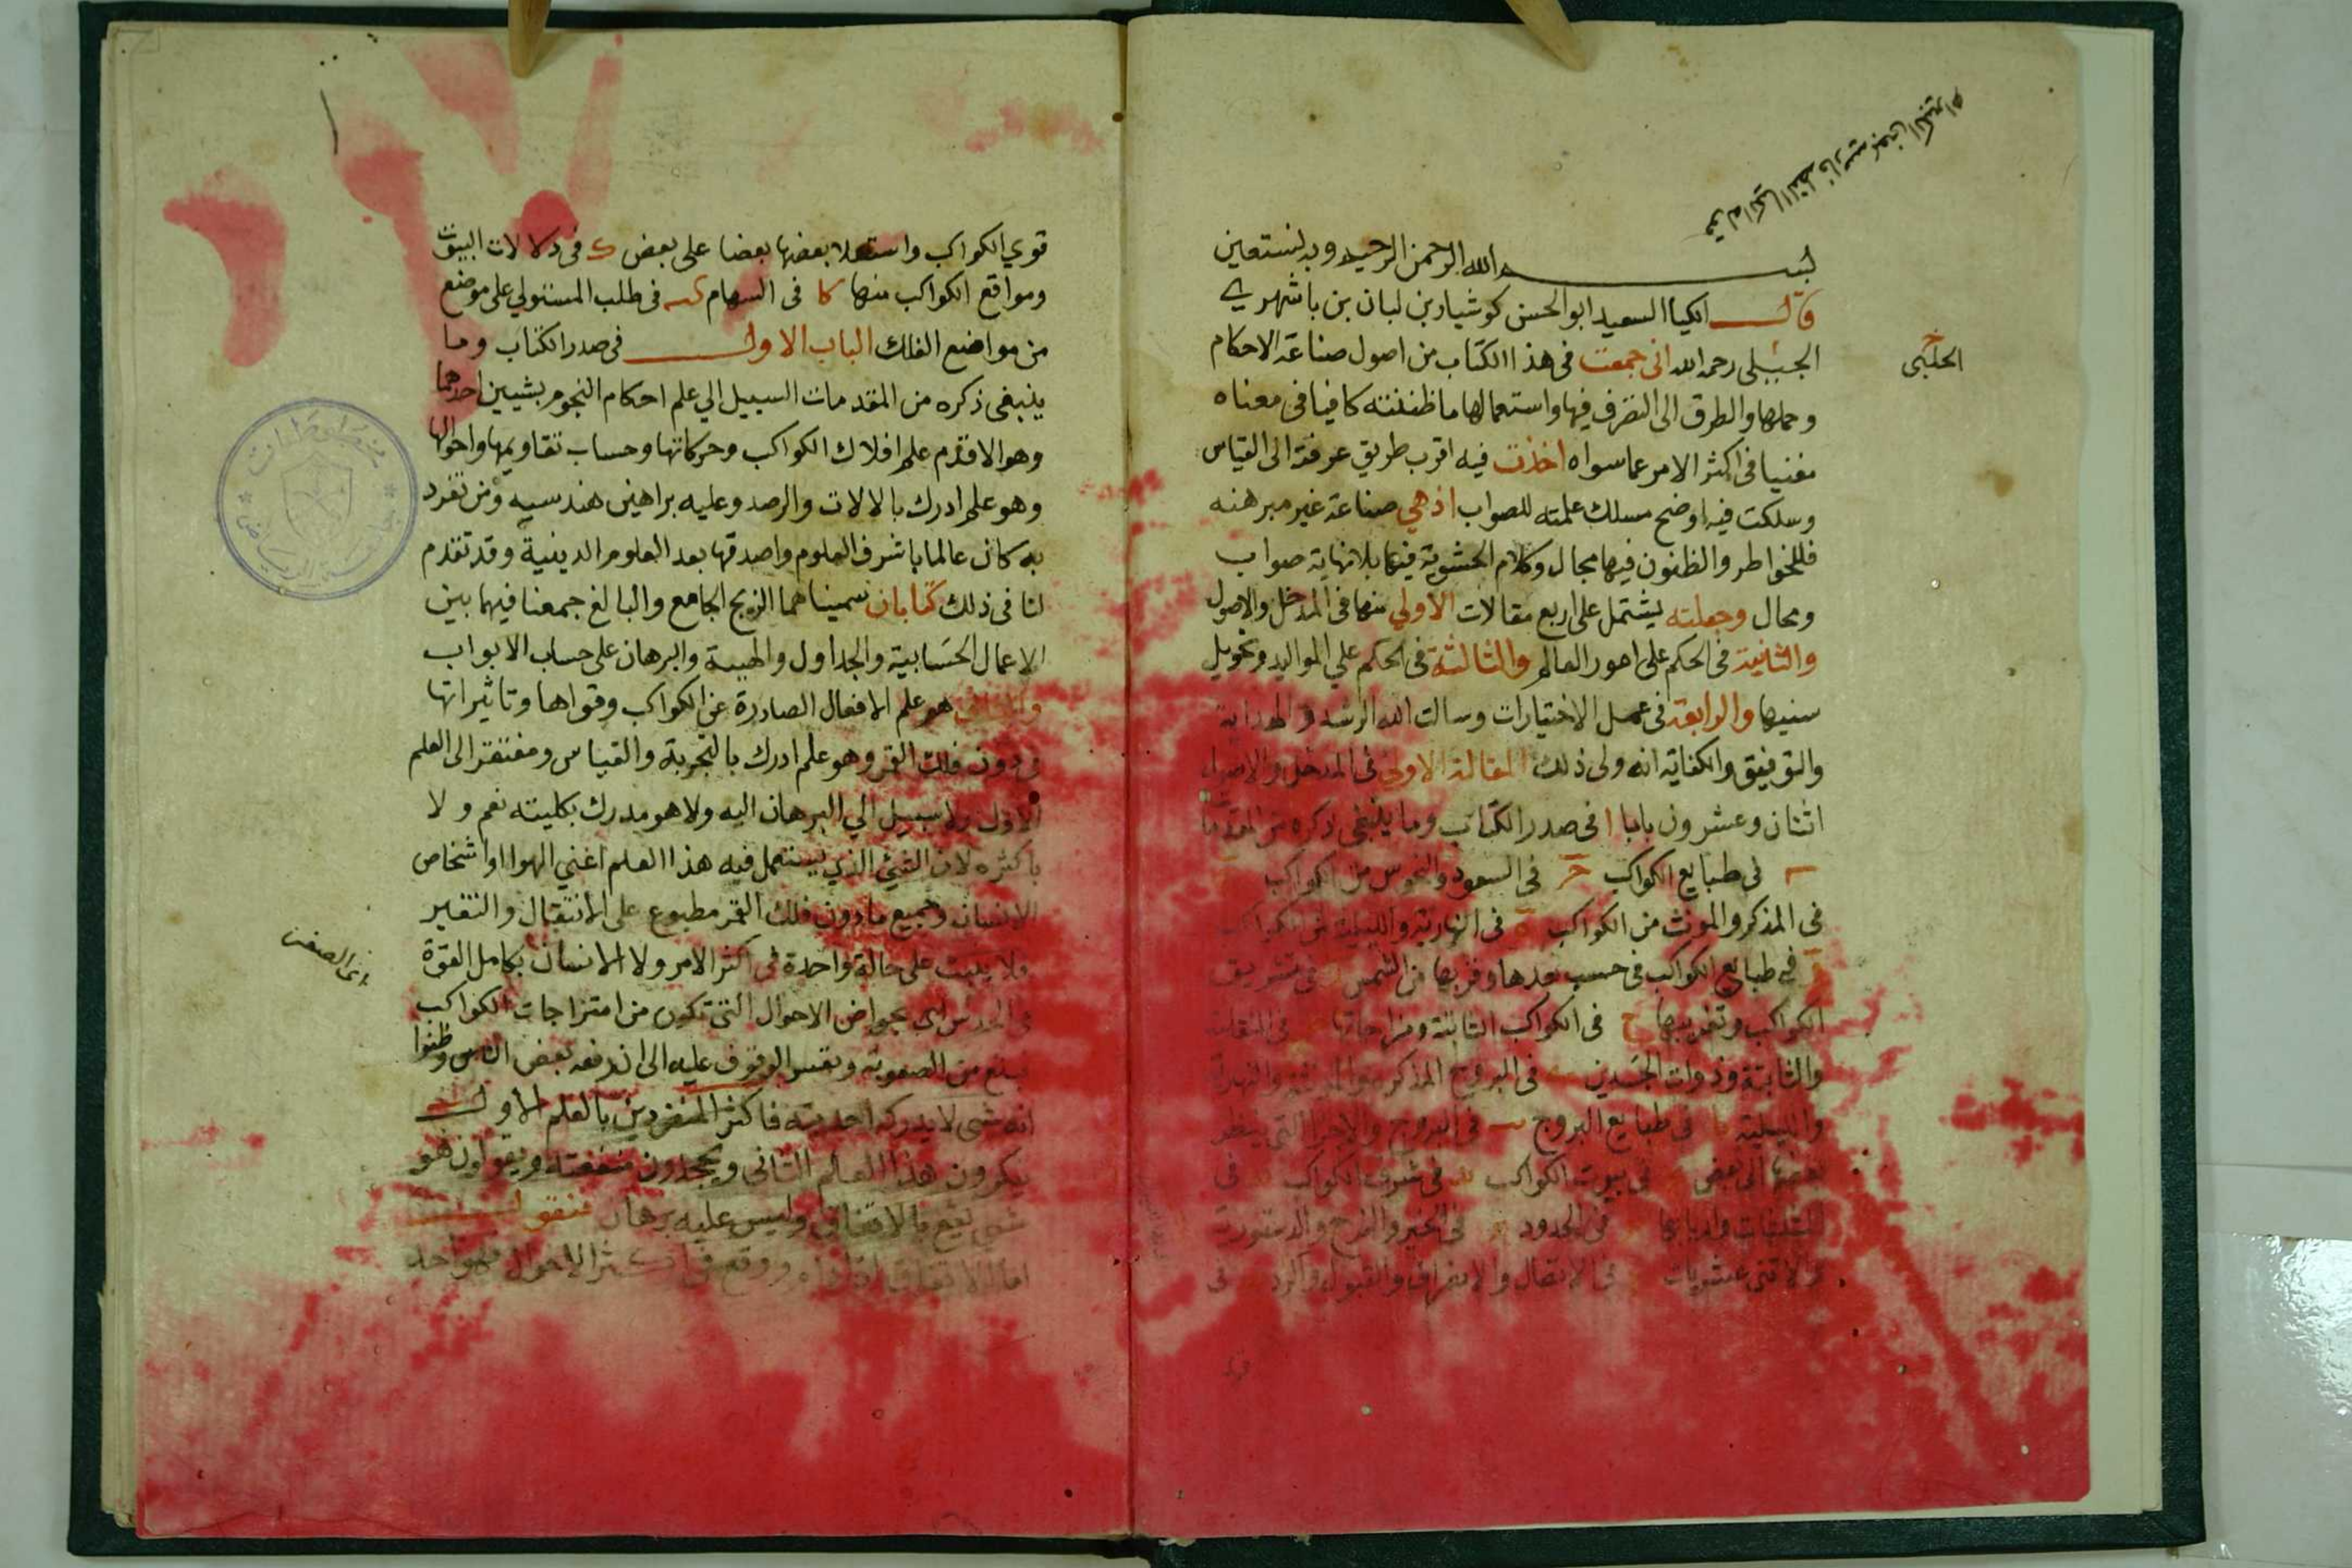 بسم الله الرحمن الرحيم وبه نستعين
قال الكيا السعيد ابو الحسن كوشيار بن لبان بن باشهري
الجيلى رحمه الله انى جمعت فى هذا الكتاب من اصول صناعة الاحكام
وجملها والطرق الى التصرف فيها واستعمالها ما ظننته كافيا فى معناه
مغنيا فى اكثر الامر عما سواه اخذت فيه اقرب طريق عرفته الى القياس
وسلكت فيه اوضح مسلك علمته للصواب اذ هي صناعة غير مبرهنه
فللخواطر والظنون فيها مجال وكلام الحشوية فيها بلا نهاية صواب
ومحال وجعلته يشتمل على اربع مقالات الاولي منها فى المدخل والاصول
والثانية فى الحكم على امور العالم والثالثة فى الحكم علي المواليد وتحويل
سنيها والرابعة فى عمل الاختيارات وسالت الله الرشد والهداية
والتوفيق والكفاية انه ولى ذلك المقالة الاولى فى المدخل والاصول
اثنان وعشرون بابا ا فى صدر الكتاب وما ينبغى ذكره من المقدما
فى طبايع الكواكب فى السعود والنحوس من الكواكب
فى المذكر والمونث من الكواكب فى النهارية والليلية من الكواكب
فى طبايع الكواكب فى حسب بعدها وقربها من الشمس فى تشريق
الكواكب وتغريبها ح فى الكواكب الثابتة ومزاجاتها فى المنقلبة
والثابتة وذوات الجسدين فى البروج المذكرة والمونثة والنهارية
والليلية فى طبايع البروج فى البروج والاجزا التى ينظر
بعضها الى بعض فى بيوت الكواكب فى شرف الكواكب فى
المثلثات واربابها فى الحدود فى الحيز والفرح والدستورية
والاثنى عشريات فى الاتصال والانصراف والقبول والرد فى
قوي
الجلبى
قوي الكواكب واستعلا بعضها بعضا على بعض ك فى دلالات البيوت
ومواقع الكواكب منها كا فى السهام كب فى طلب المستولي على موضع
من مواضع الفلك الباب الاول فى صدر الكتاب وما
ينبغى ذكره من المقدمات السبيل الي علم احكام النجوم بشيين احدهما
وهو الاقدم علم افلاك الكواكب وحركاتها وحساب تقاويمها واحوالها
وهو علم ادرك بالالات والرصد وعليه براهين هندسيه ومن تفرد
به كان عالما باشرف العلوم واصدقها بعد العلوم الدينية وقد تقدم
لنا فى ذلك كتابان سميناهما الزيج الجامع والبالغ جمعنا فيهما بين
الاعمال الحسابية والجداول والهيية والبرهان على حساب الابواب
والثانى هو علم الافعال الصادرة عن الكواكب وقواها وتاثيراتها
فى دون فلك القمر وهو علم ادرك بالتجربة والقياس ومفتقر الى العلم
الاول ولا سبيل الي البرهان اليه ولا هو مدرك بكليته نعم ولا
باكثره لان الشئ الذي يستعمل فيه هذا العلم اعني الهوا او اشخاص
الانسان وجميع ما دون فلك القمر مطبوع على الانتقال والتغير
فلا يثبت على حالة واحدة فى اكثر الامر ولا الانسان بكامل القوة
فى الحدس الى عوارض الاحوال التى تكون من امتزاجات الكواكب
فبلغ من الصعوبة وتعسر الوقوف عليه الى ان دفعه بعض الناس وظنوا
انه شى لا يدركه احد بتة فاكثر المنفردين بالعلم الاول
ينكرون هذا العلم الثانى ويجحدون منفعته ويقولون هو
شى يقع بالاتفاق وليس عليه برهان فنقول